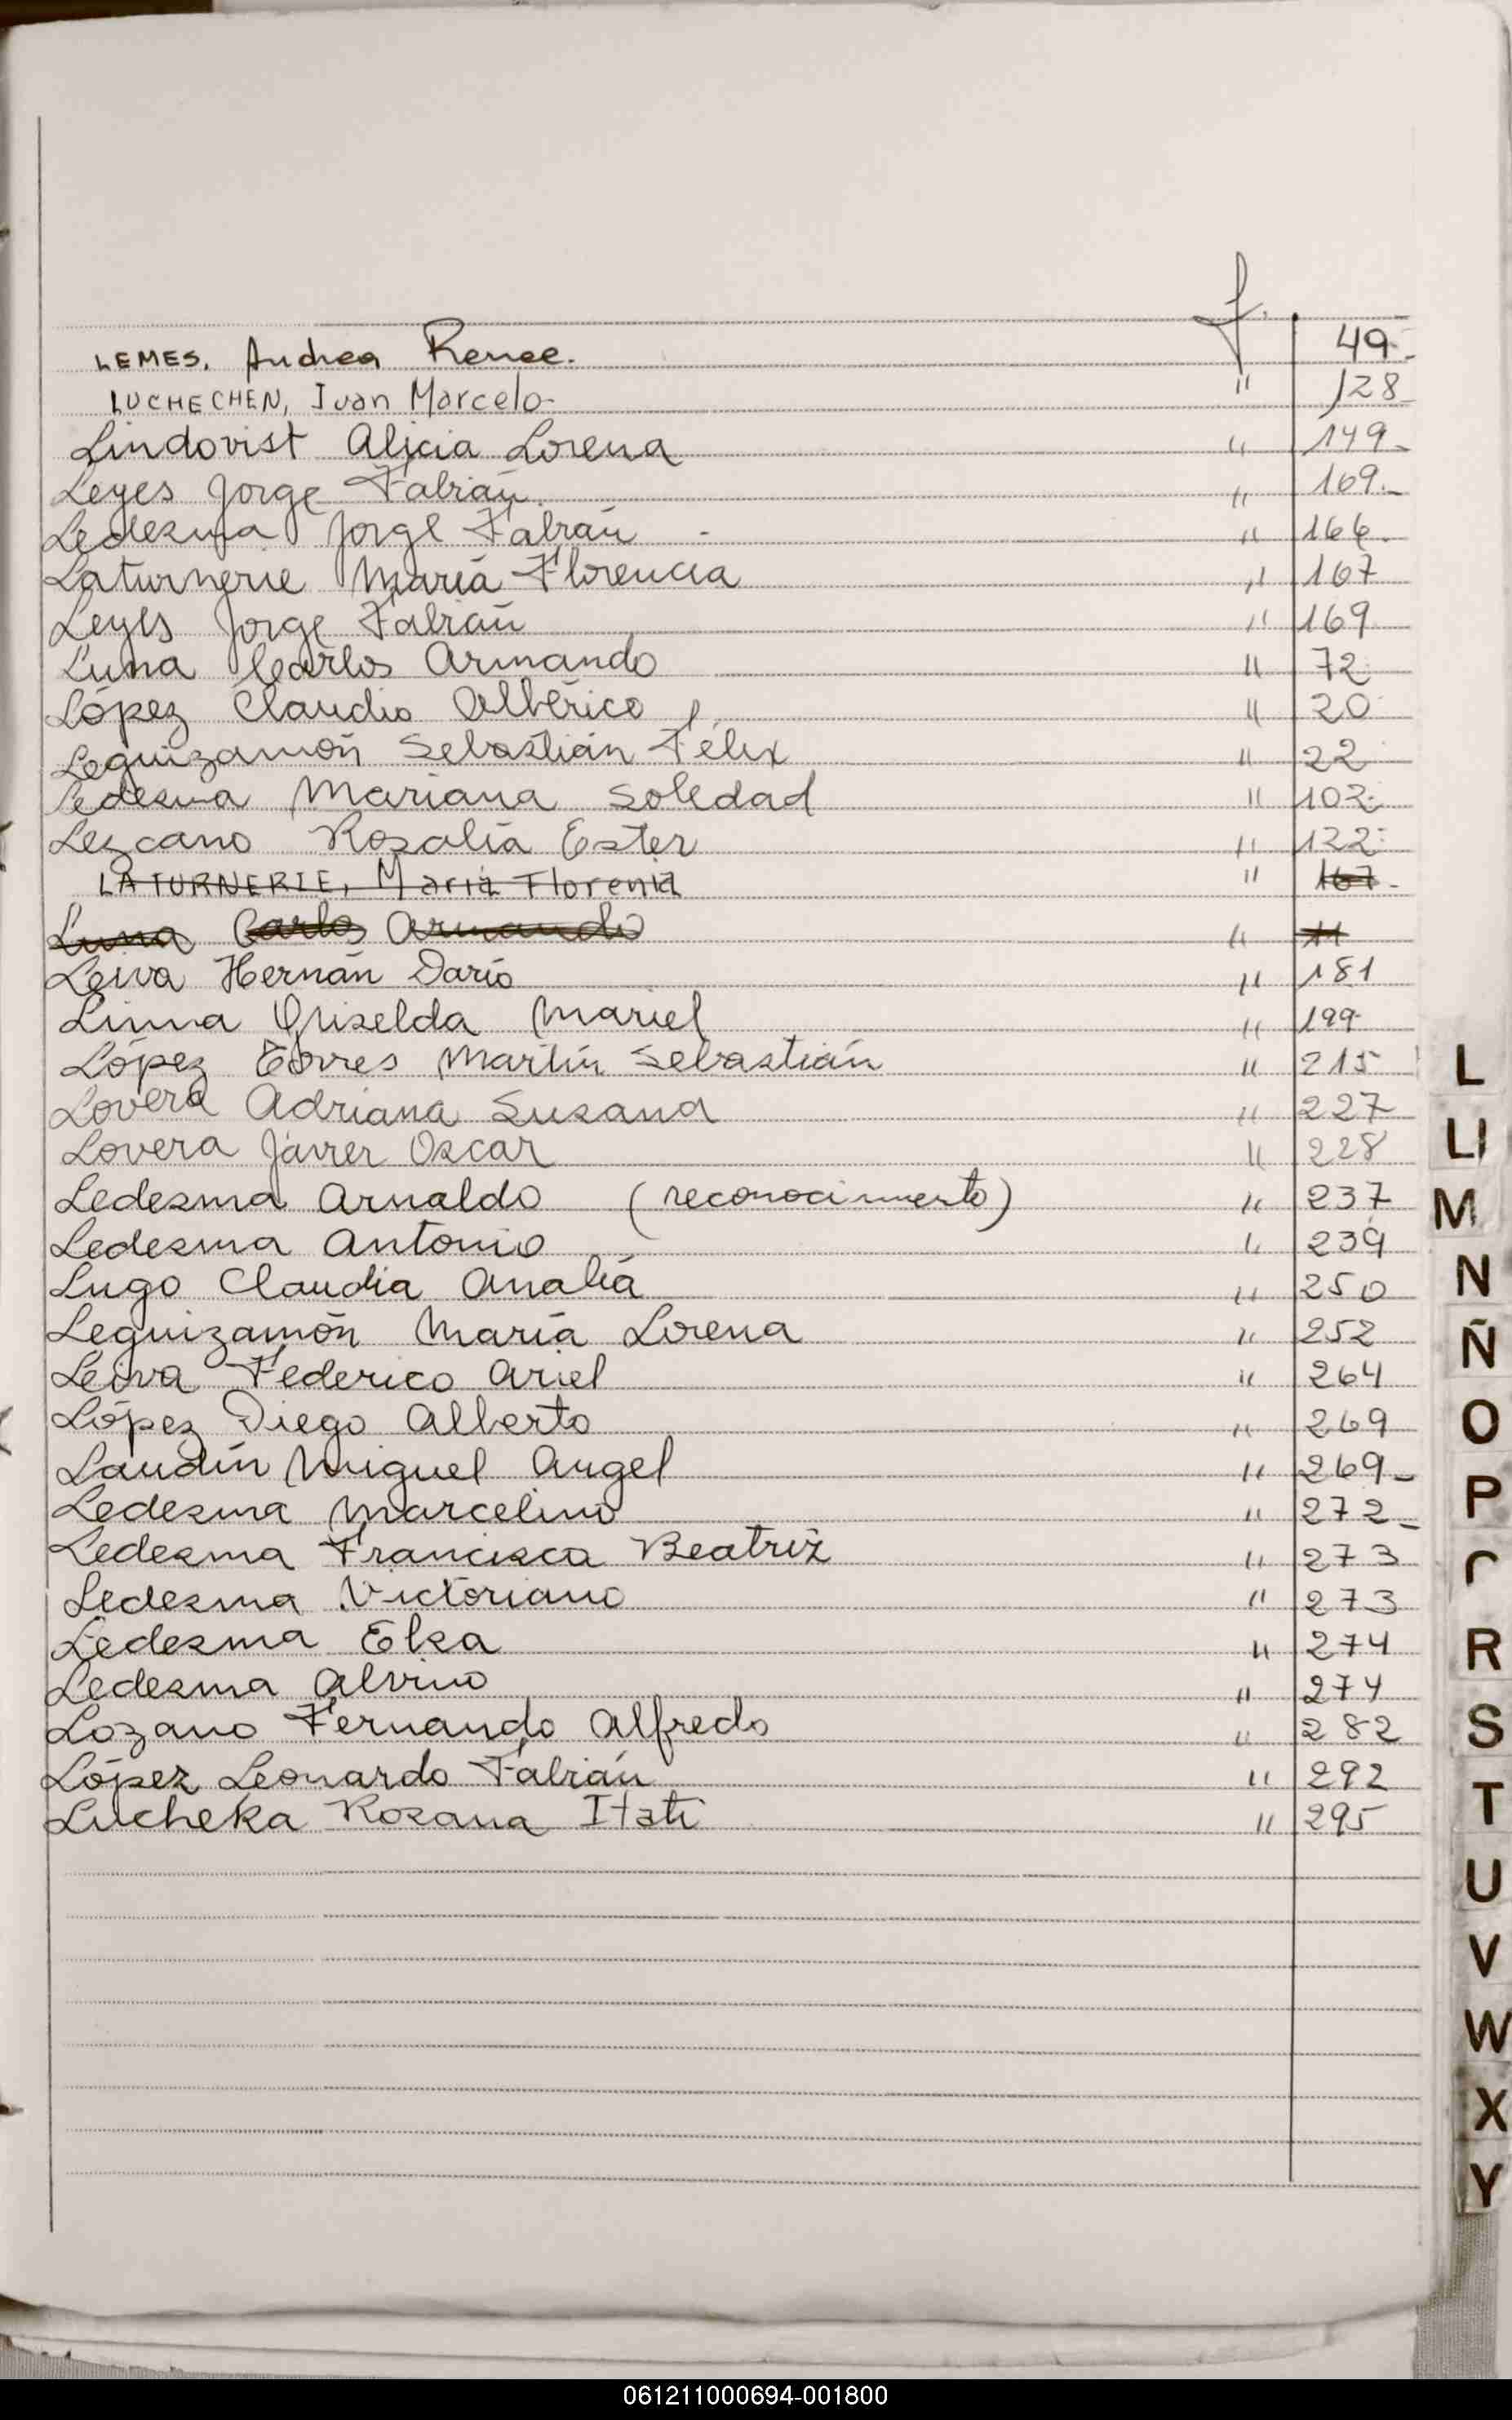 f.
LEMES, Andrea Renee. 49.-
LUCHECHEN, Ivan Marcelo- " 128-
Lindovist Alicia Lorena " 149-
Leyes Jorge Fabián " 169.-
Ledesma Jorge Fabián - " 166.
Laturnerie María Florencia " 167
Leyes Jorge Fabián " 169
Luna Carlos Armando " 72
López Claudio Albérico " 20
Leguizamón Sebastián Félix " 22
Ledesma Mariana Soledad " 102
Lezcano Rosalía Ester " 122
LATURNERIE, María Florenia " 167-
Luna Carlos Armando " 11
Leiva Hernán Darío " 181
Linna Griselda Mariel " 199
López Torres Martín Sebastián " 215
Lovera Adriana Susana " 227
Lovera Javier Oscar " 228
Ledesma Arnaldo (reconocimiento) " 237
Ledesma Antonio " 239
Lugo Claudia Analía " 250
Leguizamón María Lorena " 252
Leiva Federico Ariel " 264
López Diego Alberto " 269
Landín Miguel Angel " 269-
Ledesma Marcelino " 272-
Ledesma Francisca Beatriz " 273
Ledesma Victoriano " 273
Ledesma Elsa " 274
Ledesma Alvino " 274
Lozano Fernando Alfredo " 282
López Leonardo Fabián " 292
Lucheka Rosana Itatí " 295
L
Ll
M
N
Ñ
O
P
R
S
T
U
V
W
X
Y
061211000694-001800